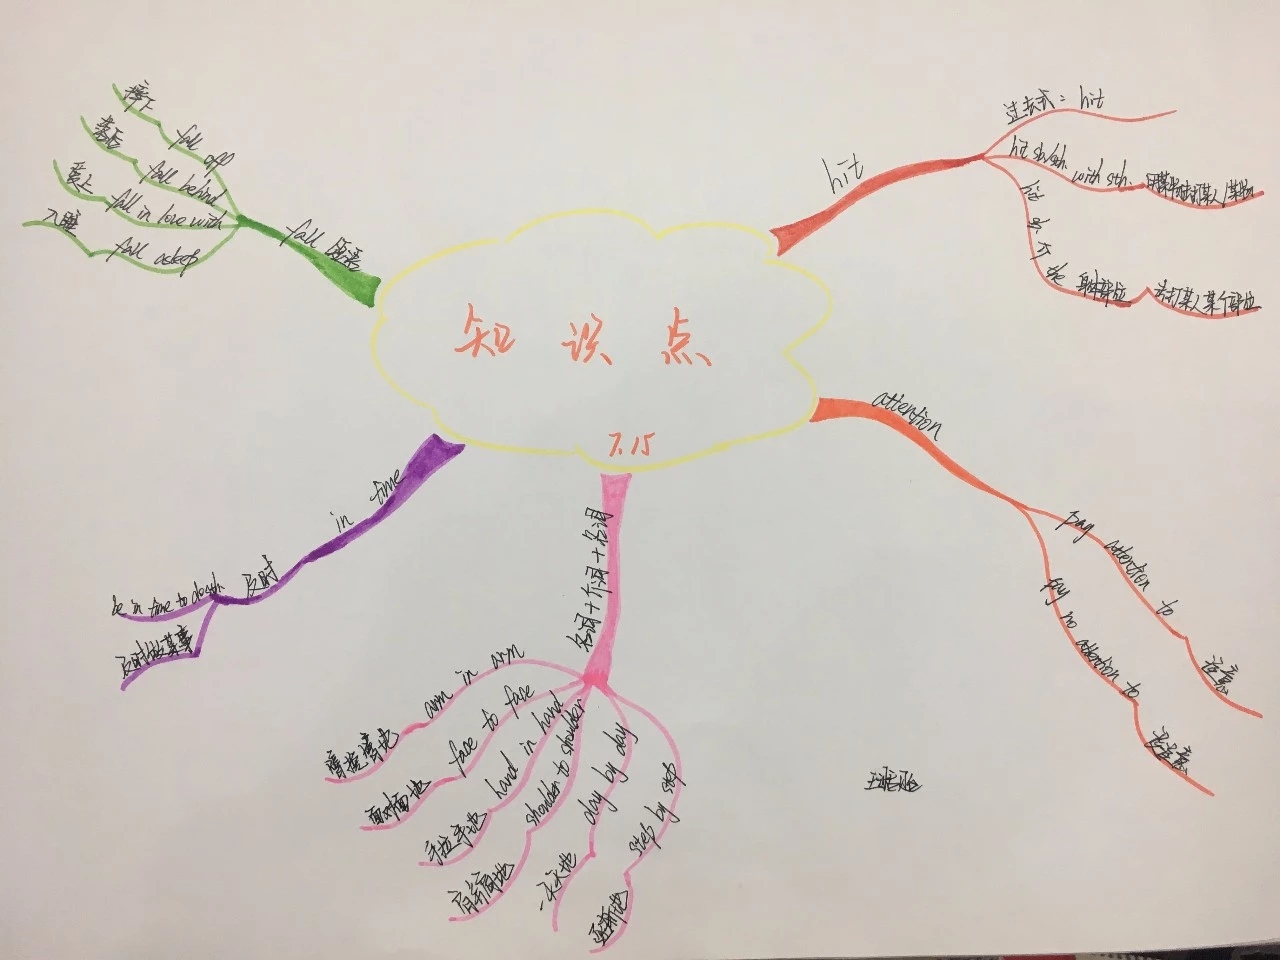 知识点
7.15
hit
过去式: hit
hit sb/sth. with sth.
hit sb. the 身体部位
击打某人某个部位
attention
pay attention to
注意
pay no attention to
不注意
名词+介词+名词
arm in arm
臂挽臂地
face to face
面对面地
hand in hand
手拉手地
shoulder to shoulder
肩并肩地
day by day
一天天地
step by step
逐渐地
in time
及时
be in time to do sth.
及时做某事
fall 短语
fall off
摔下
fall behind
落后
fall in love with
爱上
fall asleep
入睡